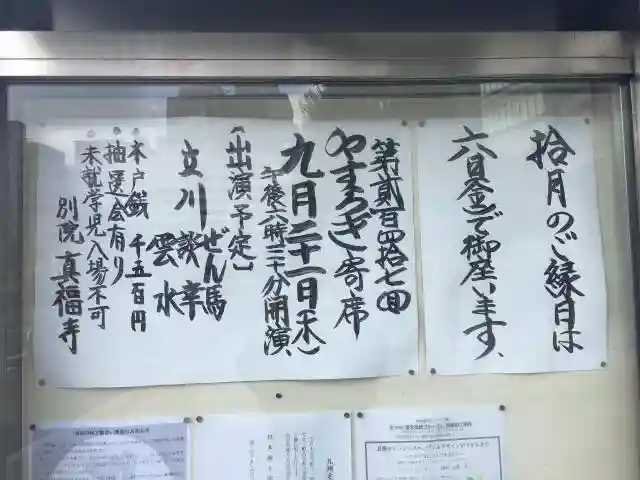 拾月のご縁日は
六日(金)で御座います。
第貳百四拾七回
やすらぎ寄席
九月二十一日(木)
午後六時三十分開演
(出演予定)
立川 ぜん馬
談幸
雲水
木戸銭 千五百円
抽選会有り
未就学児入場不可
別院 真福寺